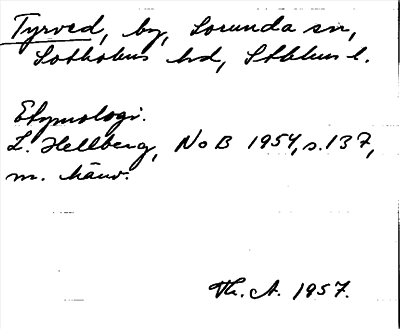 Tyrved, by, Sorunda sn,
Sotholms hd, Sthlms l.
Etymologi.
L. Hellberg, NoB 1954, s. 137,
m. hänv.
Th. A. 1957.